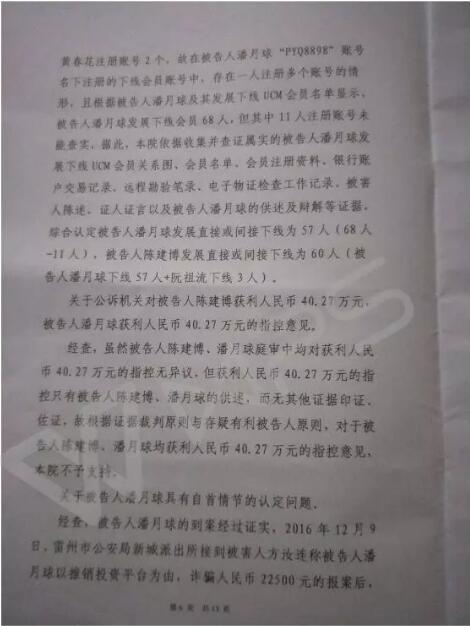 黄春花注册账号2个，故在被告人潘月球“PYQ8898”账号
名下注册的下线会员账号中，存在一人注册多个账号的情
形，且根据被告人潘月球及其发展下线UCM会员名单显示，
被告人潘月球发展下线会员68人，但其中11人注册账号未
能查实，据此，本院依据收集并查证属实的被告人潘月球发
展下线UCM会员关系图、会员名单、会员注册资料、银行账
户交易记录、远程勘验笔录、电子物证检查工作记录、被害
人陈述、证人证言以及被告人潘月球的供述及辩解等证据，
综合认定被告人潘月球发展直接或间接下线为57人（68人
-11人），被告人陈建博发展直接或间接下线为60人（被
告人潘月球下线57人+阮祖流下线3人）。
关于公诉机关对被告人陈建博获利人民币40.27万元，
被告人潘月球获利人民币40.27万元的指控意见。
经查，虽然被告人陈建博、潘月球庭审中均对获利人民
币40.27万元的指控无异议，但获利人民币40.27万元的指
控只有被告人陈建博、潘月球的供述，而无其他证据印证、
佐证，故根据证据裁判原则与存疑有利被告人原则，对于被
告人陈建博、潘月球均获利人民币40.27万元的指控意见，
本院不予支持。
关于被告人潘月球具有自首情节的认定问题．
经查，被告人潘月球的到案经过证实，2016年12月9
日，雷州市公安局新城派出所接到被害人方汝连称被告人潘
月球以推销投资平台为由，诈骗人民币22500元的报案后，
第6页 共13页